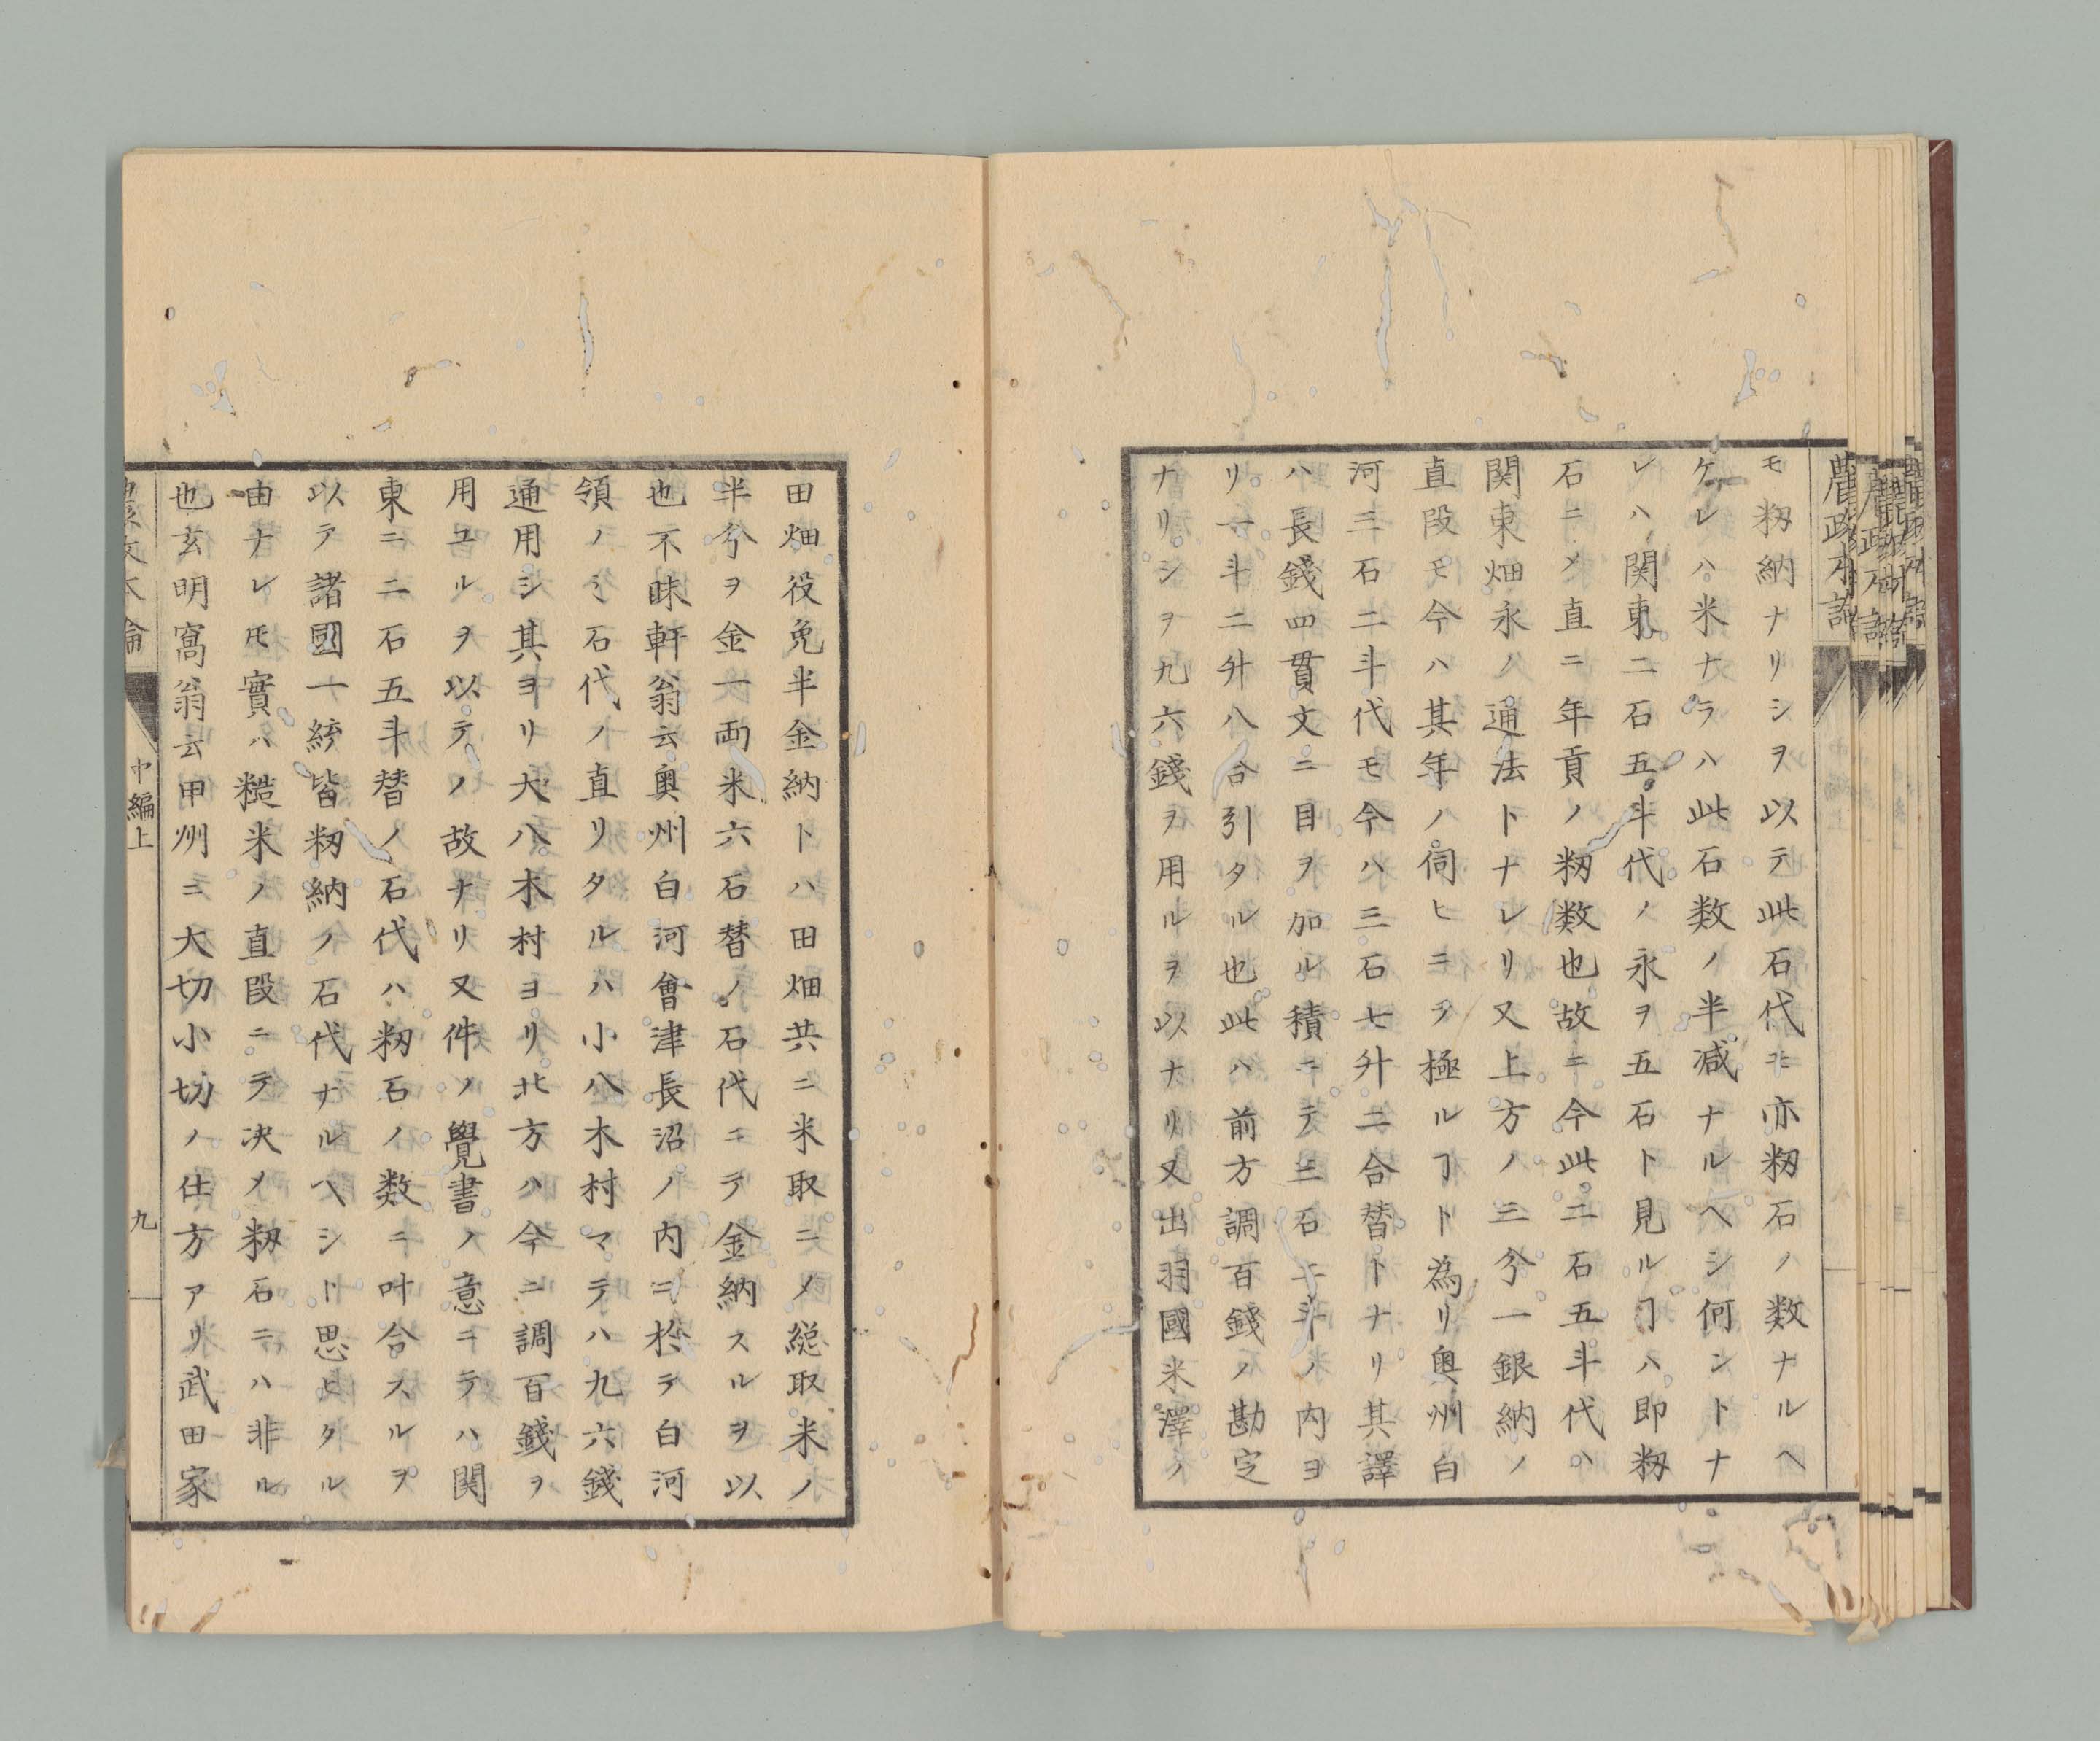 モ籾納ナリシヲ以テ此石代ニ亦籾石ノ数ナルヘ
ケレハ米ナラハ此石数ノ半减ナルヘシ何ントナ
レハ関東二石五斗代ノ永ヲ五石ト見ルヿハ即籾
石ニメ直ニ年貢ノ籾数也故ニ今此二石五斗代ハ
関東畑永ノ通法トナレリ又上方ノ三分一銀納ノ
直段モ今ハ其年ノ伺ヒニテ極ルヿト為リ奥州白
河三石二斗代モ今ハ三石七升二合替トナリ其譯
ハ長錢四貫文ニ目ヲ加ル積ニテ三石二斗ノ内ヨ
リ一斗二升八合引タル也此ハ前方調百錢ノ勘定
ナリシヲ九六錢ヲ用ルヲ以ナリ又出羽國米澤ノ
田畑役免半金納ト八田畑共ニ米取ニメ総取米ノ
半分ヲ金一両米六石替ノ石代ニテ金納スルヲ以
也不昧軒翁云奥州白河會津長沼ノ内ニ於テ白河
領ノミ石代ノ直リタルハ小八木村マテハ九六錢
通用シ其ヨリ大八木村ヨリ北方ハ今ニ調百錢ヲ
用ユルヲ以テノ故ナリ又件ノ覺書ノ意ニテハ関
東ニ二石五斗替ノ石代ハ籾石ノ数ニ叶合スルヲ
以テ諸國一統皆籾納ノ石代ナルヘシト思ヒタル
由ナレ𪜈實ハ糙米ノ直段ニテ决メ籾石ニハ非ル
也玄明窩翁云甲州ニ大切小切ノ仕方アリ武田家
中編上
九